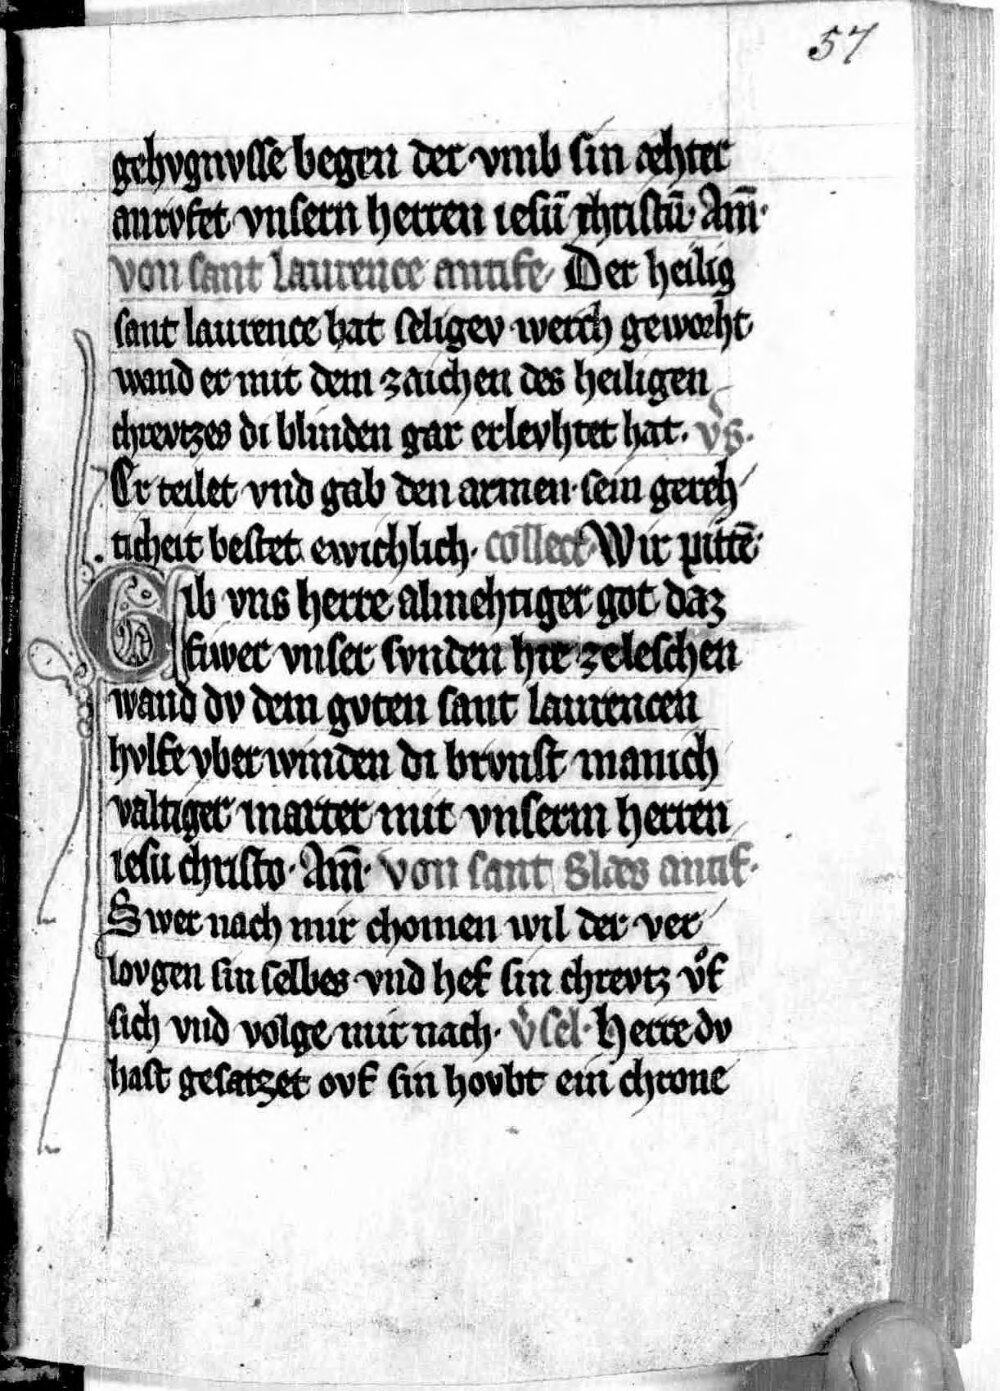 57
gehvgnvsse begen der vmb sin æhter
anrvfet vnsern herren iesū christū· Am̄·
von sant laurence antife· Der heilig
sant laurence hat seligev werch geworht
wand er mit dem zaichen des heiligen
chrevtzes di blinden gar erlevhtet hat. vs̾·
Er teilet vnd gab den armen· sein gereh
ticheit bestet ewichlich· collect· Wir pittē·
Gib vns herre almehtiger got daz
fiwer vnser svnden hie zeleschen
wand dv dem gvten sant laurencen
hvlfe vberwinden di brvnst manich
valtiger marter mit vnserm herren
iesu christo· Am̄· von sant Slaes antif·
Swer nach mir chomen wil der ver
lovgen sin selbes vnd hef sin chrevtz vͦf
sich vnd volge mir nach· v̾sel· Herre dv
hast gesatzet ovf sin hovbt ein chrone